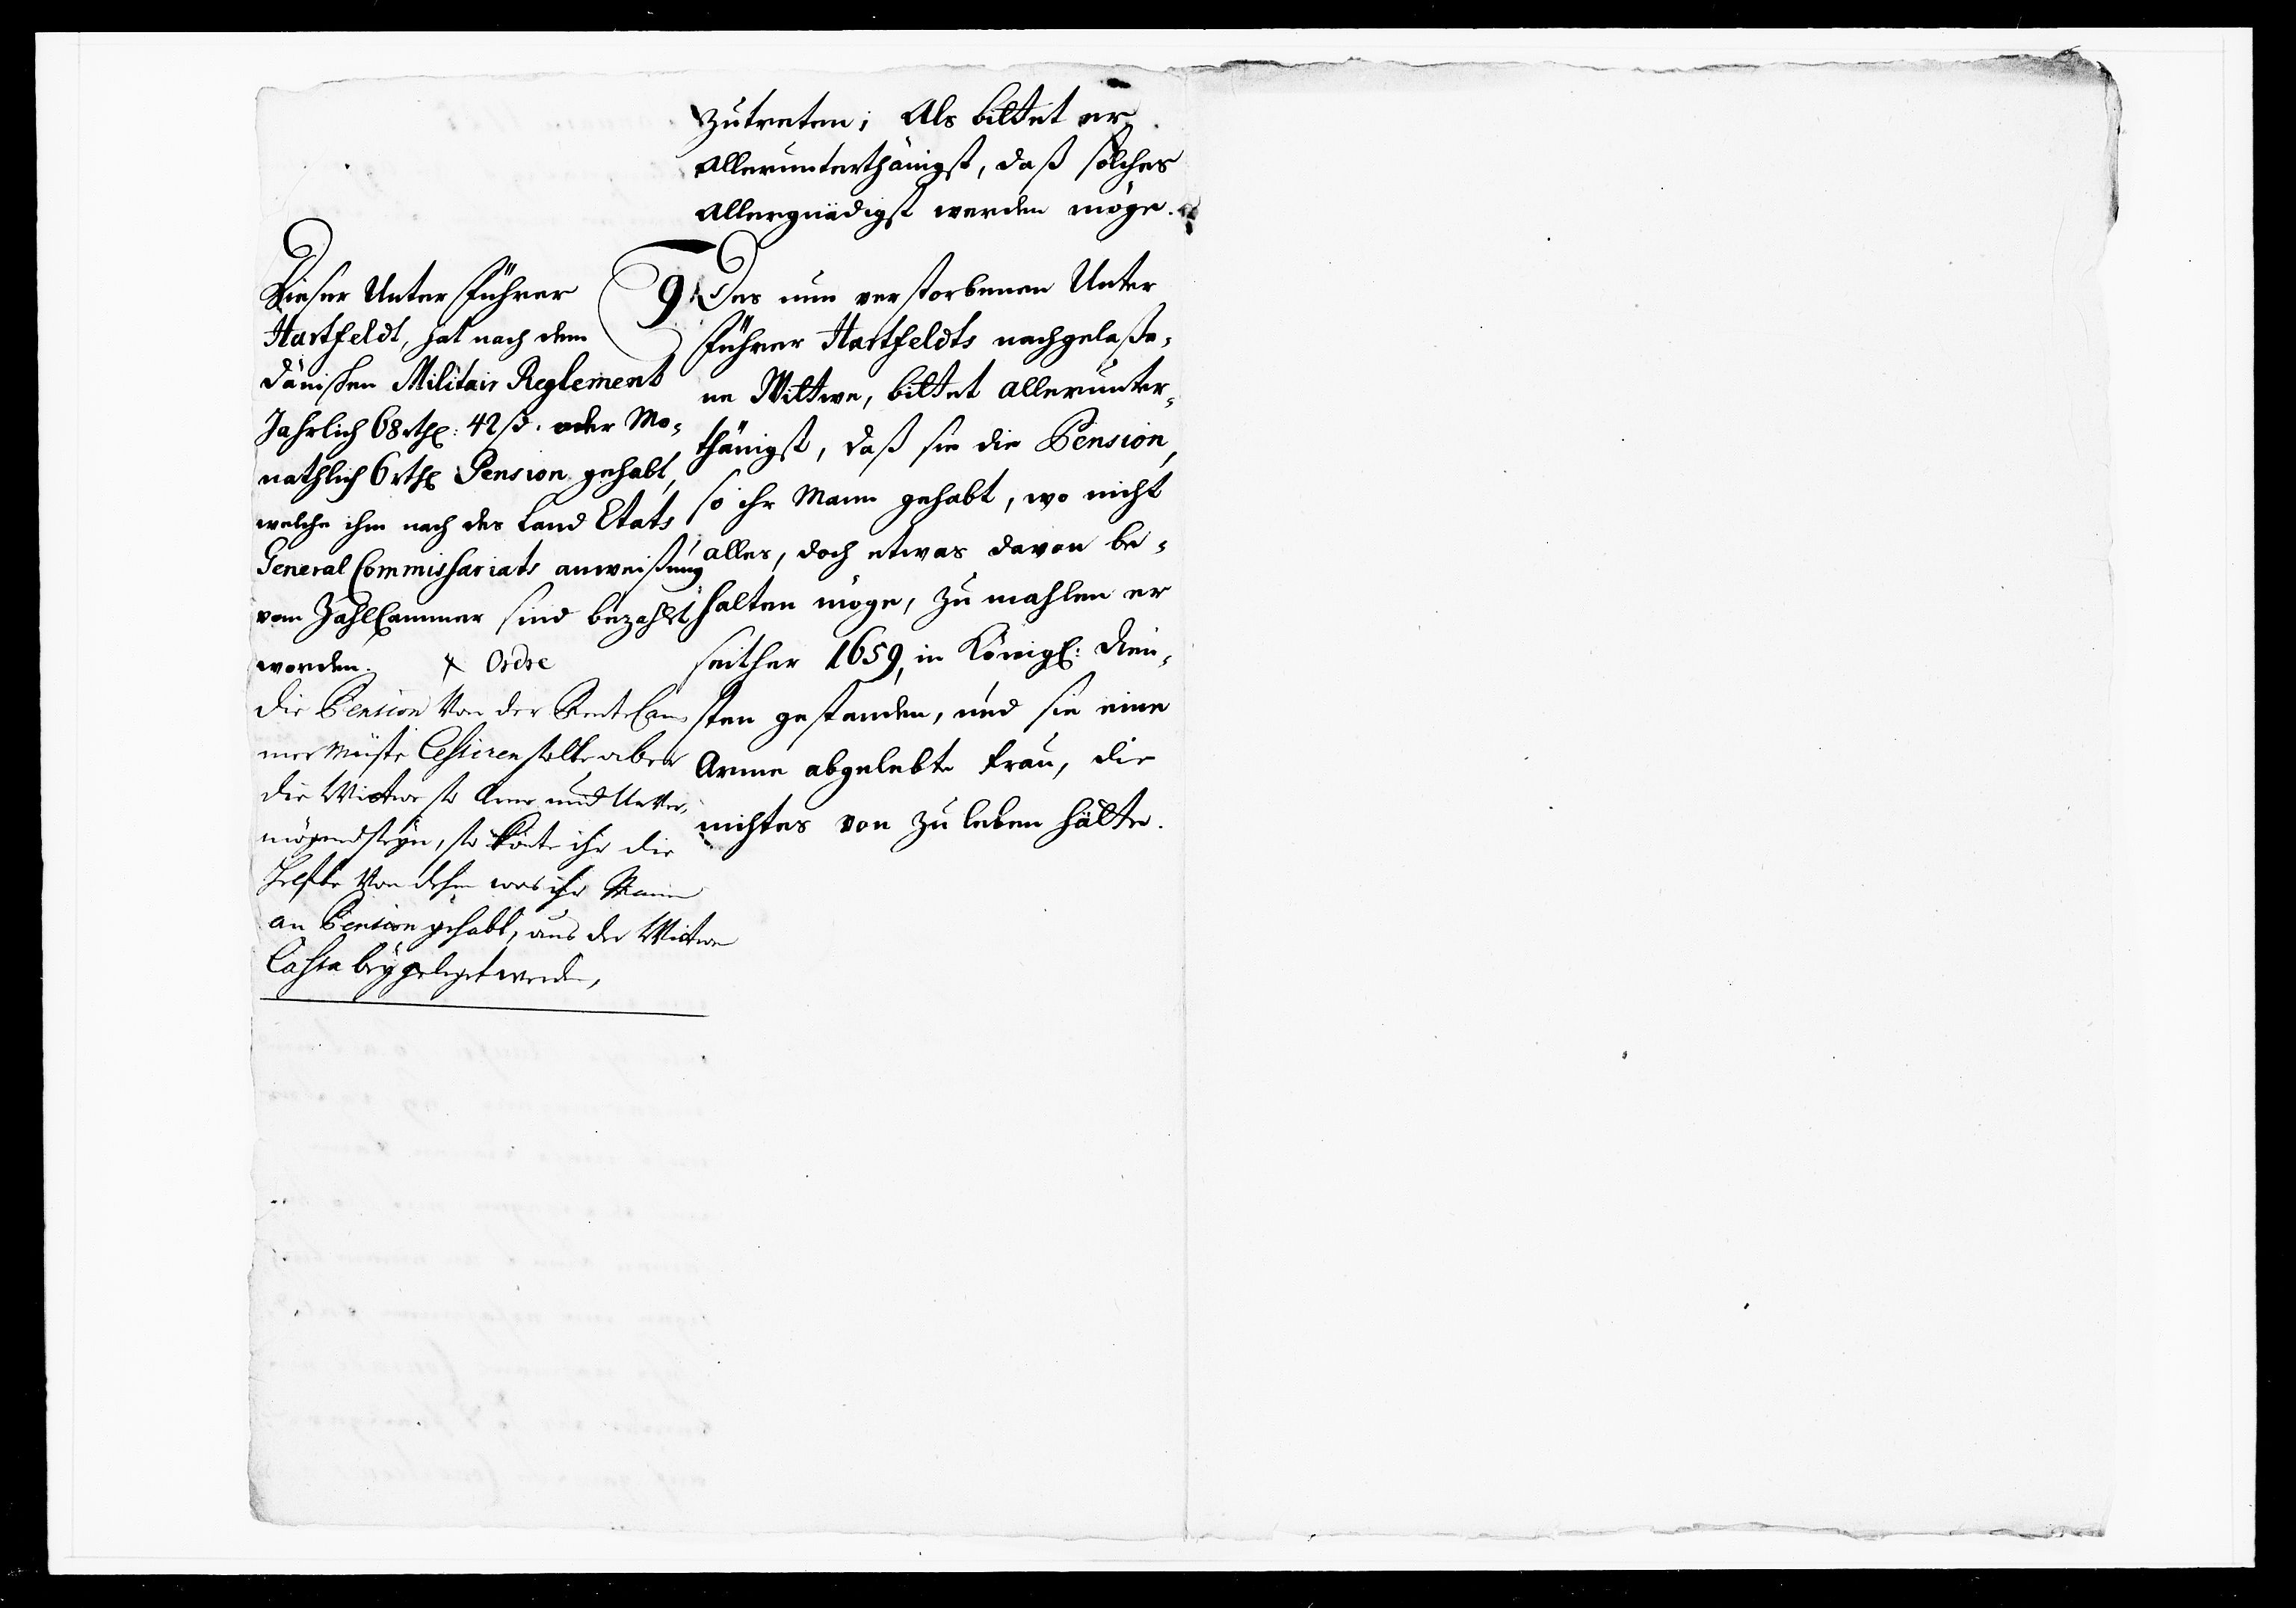 zutreten; Als bittet er
Allerunterthänigst, daß solches
Allergnädigst werden möge.
9. Des nun verstorbenen Unter
führer Hartfeldts nachgelaße-
ne Wittwe, bittet allerunter-
thänigst, daß sie die Pension,
so ihr Mann gehabt, wo nicht
alles, doch etwas davon be-
halten möge, zu mahlen er
seither 1659, in Königl: Dien-
sten gestanden, und sie eine
Arme abgelebte frau, die
nichtes von zu leben hätte.
Dieser Unter führer
Hartfeldt, hat nach dem
dänischen Militair Reglement
Jahrlich 68 rthl: 42 ß. oder Mo-
nathlich 6 rthl Pension gehabt,
welche ihm nach des Land Etats
General Commissariats anweißung
vom Zahl Cammer sind bezahlt
worden. Ordre
die Pension Von der Rente Cam-
mer müste Cessiren solte aber
die Witwe so Arm und Unver-
mögend seyn, so könte ihr die
Helfte Von dehm was ihr Mann
an Pension gehabt, aus der Witwe
Cassa beygeleget werden,